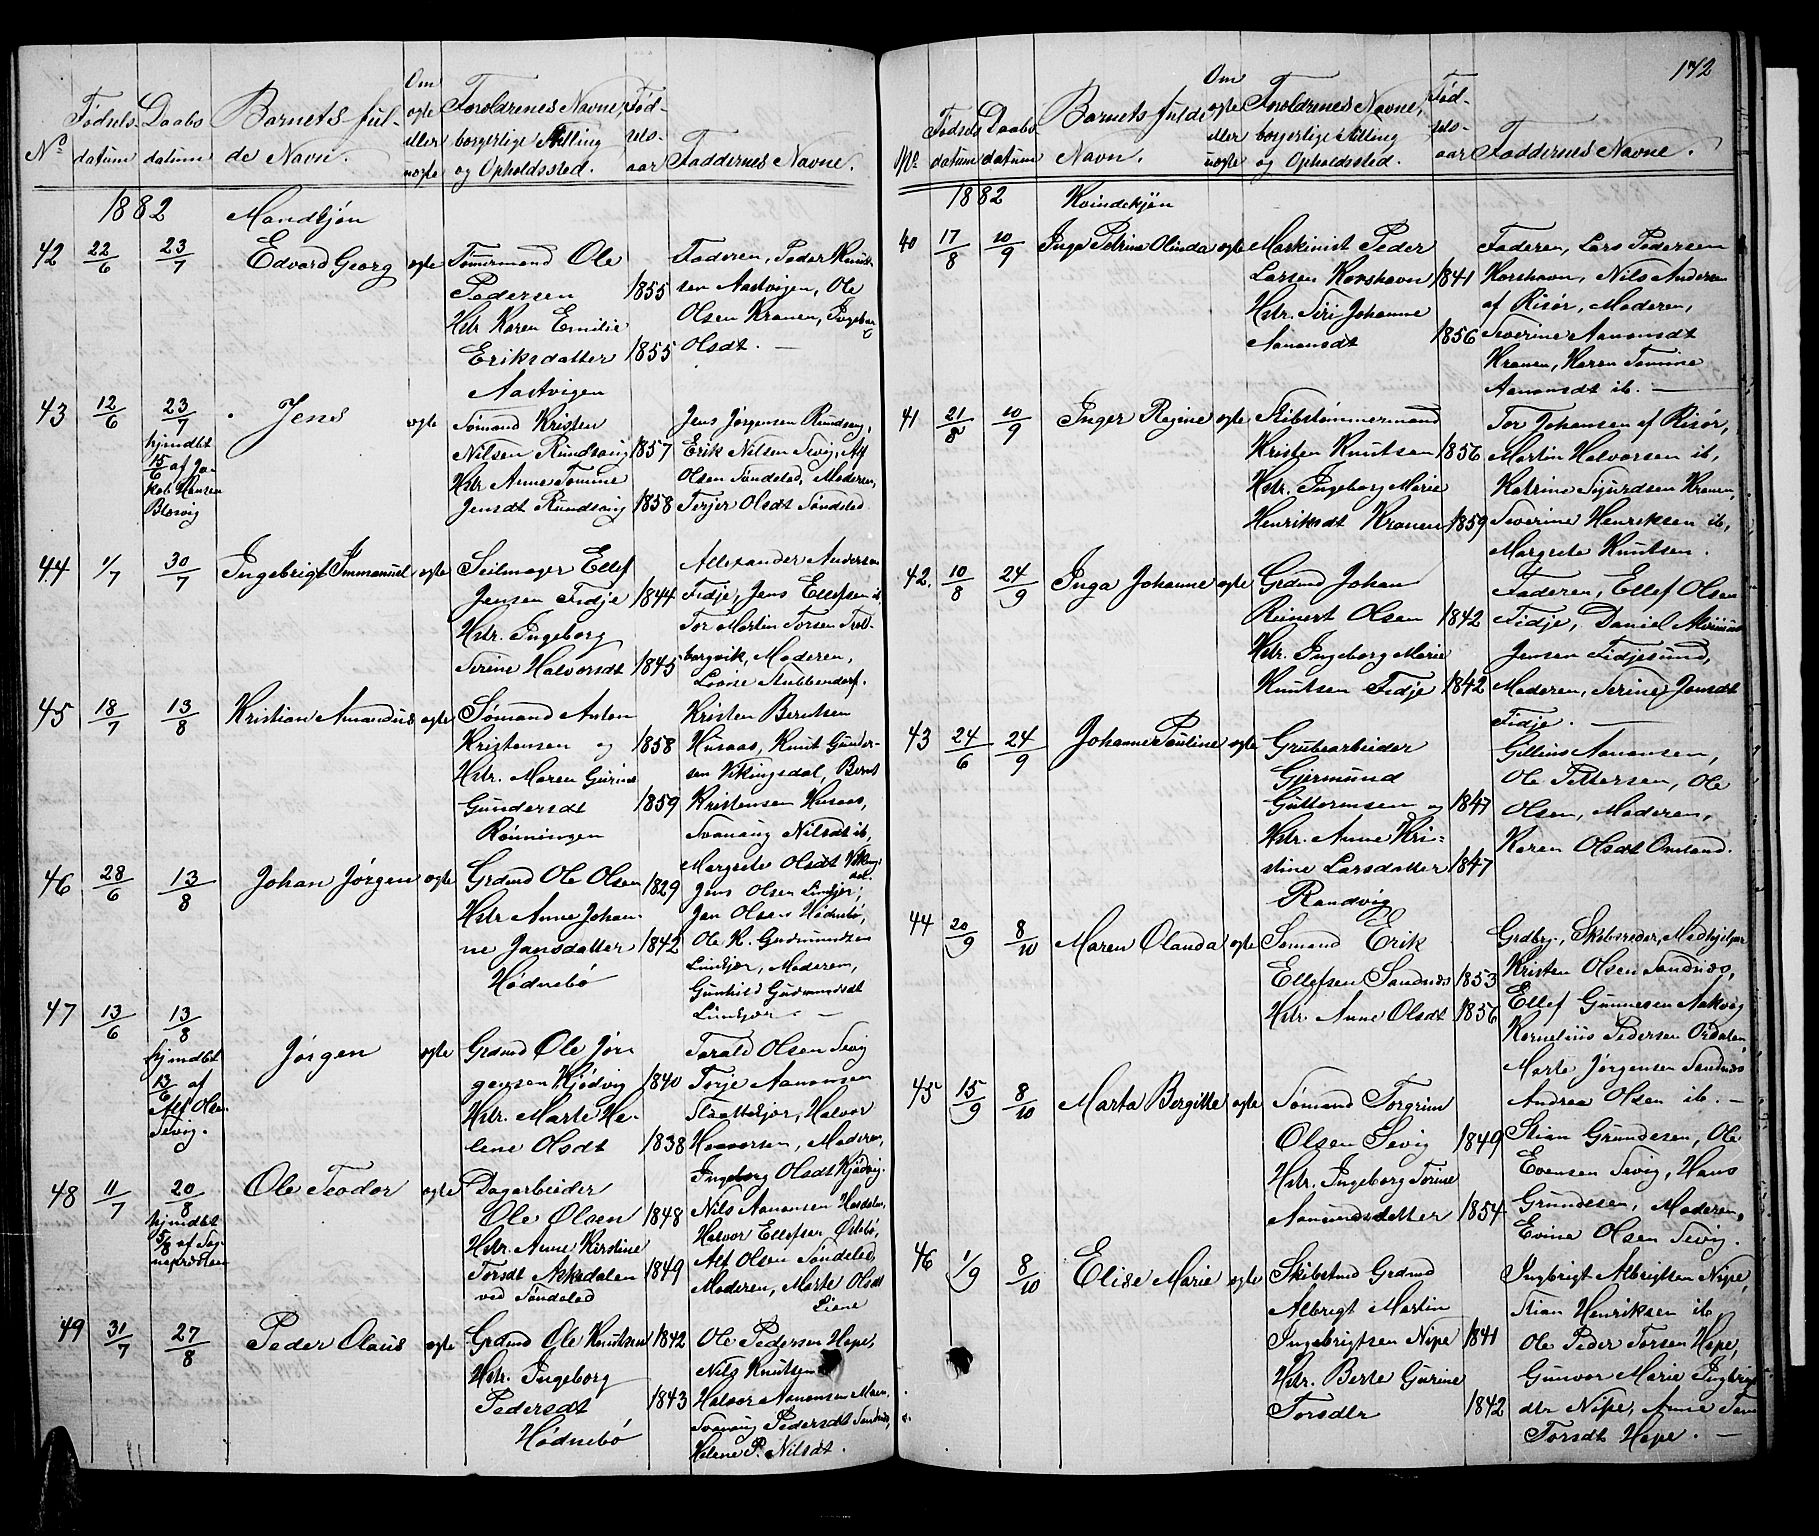 142
No
Fødsels-
datum
Daabs
datum
Barnets ful-
de Navn.
Om
ægte
eller
uægte
Forældrenes Navne,
borgerlige Stilling
og Opholdssted.
Fød-
sels-
aar
Faddernes Navne.
1882
Mandkjøn
42 22/6 23/7 Edvard Georg ægte
Tømermand Ole
Pedersen 1855
Hstr Karen Emilie
Eriksdatter 1855
Aastvigen
Faderen, Peder Knud-
sen Aastvigen, Ole
Olsen Kranen, Ingebor
Olsdt.
43 12/6 23/7 Jens ægte
hjmdbt
15/6 af Ja-
kob Hansen
Blesvig
Sømand Kristen
Nilsen Rundsaug 1857
Hstr Anne Tomine
Jensdt Rundsaug 1858
Jens Jørgensen Rundsaug,
Erik Nilsen Sevig, Alf
Olsen Søndeled, Moderen,
Terjer Olsdt Søndeled.
44 1/7 30/7 Ingebrigt Immanuel ægte
Seilmager Ellef
Jensen Fidje 1844
Hstr. Ingeborg
Serine Halvorsdt 1845
Allexander Andersen
Fidje, Jens Ellefsen ib,
Tor Martin Torsen Trold-
bergvik, Moderen,
Lovise Stubbendorf.
45 18/7 13/8 Kristian Amandus ægte
Sømand Anton
Kristensen og 1858
Hstr. Maren Gurine
Gundersdt 1859
Rønningen
Kristen Berntsen
Husaas, Knut Gunder-
sen Vikingsdal, Bernt
Kristensen Husaas,
Svanaug Nilsdt ib,
Margrete Olsdt Vikings-
dal.
46 28/6 13/8 Johan Jørgen ægte
Grdmd Ole Olsen 1829
Hstr Anne Johan-
ne Jansdatter 1842
Hødnebø
Jens Olsen Lindkjær,
Jan Olsen Hødnebø,
Ole K. Gudmundsen
Lindkjær, Moderen,
Gunhild Gudmundsdt
Lindkjær
47 13/6 13/8 Jørgen ægte
hjmdbt
13/6 af
Alf Olsen
Sevig.
Grdmd Ole Jør-
gensen Kjødvig 1840
Hstr. Marte He-
lene Olsdt 1838
Torald Olsen Sevig
Torje Aanonsen
Slaattekjær, Halvor
Havorsen, Moderen,
Ingeborg Olsdt Kjødvig.
48 11/7 20/8 Ole Teodor ægte
hjmdbt
5/8 af Sog-
nepræsten
Dagarbeider
Ole Olsen 1848
Hstr. Anne Kirstine
Torsdt Askedalen 1849
ved Søndeled
Nils Aanonsen Hasdalen,
Halvor Ellefsen Østebø,
Alf Olsen Søndeled,
Moderen, Marte Olsdt
Liene
49 31/7 27/8 Peder Olaus ægte
Grdmd Ole Knutsen 1842
Hstr. Ingeborg
Pedersdt 1843
Hødnebø
Ole Pedersen Hope,
Nils Knutsen
Halvor Aanonsen Moen,
Svanaug Pedersdt Sandnæs,
Helene P. Nilsdt.
No
Fødsels
datum
Daabs
datum
Barnets fulde
Navn.
Om
ægte
eller
uægte
Forældrenes Navne,
borgerlige Stilling
og Opholdssted.
Fød-
sels-
aar
Faddernes Navne.
1882
Kvindekjøn
40 17/8 10/9 Inga Petrine Olinda ægte
Maskinist Peder
Larsen Korshavn 1841
Hstr. Siri Johanne
Aanonsdt 1856
Faderen, Lars Pedersen
Korshavn, Nils Andersen
af Risør, Moderen,
Severine Aanonsdt
Kranen, Karen Tomine
Aanonsdt ib.
41 21/8 10/9 Inger Regine ægte
Skibstømmermand
Kristen Knutsen 1856
Hstr. Ingeborg Marie
Henriksdt Kranen 1859
Tor Johansen af Risør,
Martin Halvorsen ib,
Katrine Sigurdsen Kranen,
Severine Henriksen ib,
Margrete Knutsen.
42. 10/8 24/9 Inga Johanne ægte
Grdmd Johan
Reinert Olsen 1842
Hstr. Ingeborg Marie
Knutsen Fidje 1842
Faderen, Ellef Olsen
Fidje, Daniel
Jensen Fidjesund,
Moderen, Serine Jensdt
Fidje.
43 24/6 24/9 Johanne Pauline ægte
Grubearbeider
Gjermund
Guttormsen og 1847
Hstr. Anne Kri-
stine Larsdatter 1847
Randvig
Gillius Aanonsen,
Ole Pettersen, Ole
Olsen, Moderen,
Karen Olsdt Omland.
44 20/9 8/10 Maren Olanda ægte
Sømand Erik
Ellefsen Sandnæs 1853
Hstr. Anne Olsdt 1856
Grdbrg., Skibsreder, Medhjelper
Kristen Olsen Sandnæs,
Ellef Gunnesen Aakvåg
Kornelius Pedersen Ørdalen,
Marte Jørgensen Sandnæs
Andrea Olsen ib.
45 15/9 8/10 Marta Bergitte ægte
Sømand Torgrim
Olsen Sevig 1849
Hstr. Ingeborg Torine
Aanundsdatter 1854
Stian Grundesen, Ole
Evensen Sevig, Hans
Grundesen, Moderen,
Evine Olsen Sevig.
46 1/9 8/10 Elise Marie ægte
Skibstmd Grdmd
Albregt Martin
Ingebrigtsen Nipe 1841
Hstr. Berte Gurine
Torsdtr 1842
Ingbrigt Albrigtsen Nipe,
Stian Henriksen ib
Ole Peder Torsen Hope,
Gunvor Marie Ingbrigts
dtr Nipe, Anne
Torsdt Hope.